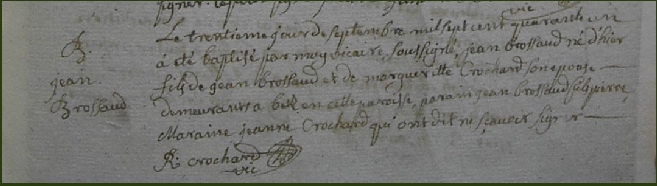 B.
jean
Brossaud
Le trentieme jour de septembre mil sept cent quarante un
a été baptisé par moy vicaire soussigné, jean brossaud né d'hier
fils de jean Brossaud et de margueritte Crochard son epouse
demeurants a en cette paroisse, parain jean brossaud
Maraine jeanne Crochard qui ont dit ne sçavoir signer
R: crochard
vic